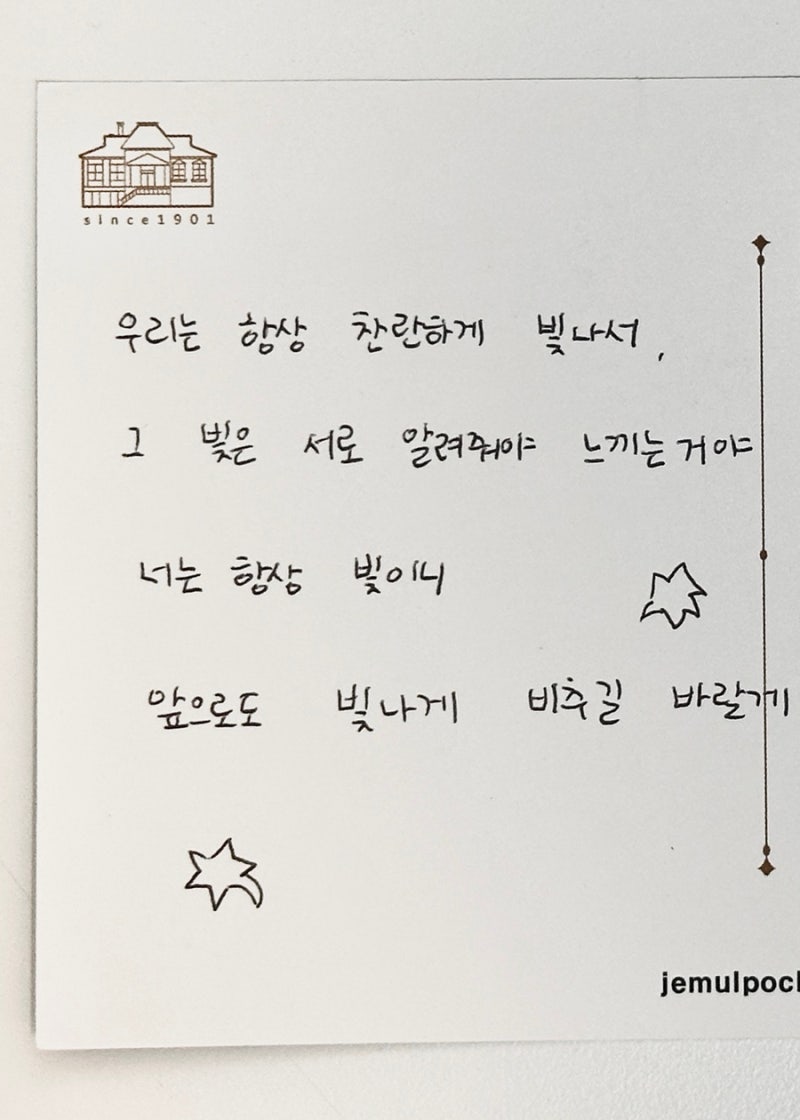 since1901
우리는 항상 찬란하게 빛나서,
그 빛은 서로 알려줘야 느끼는거야
너는 항상 빛이니
앞으로도 빛나게 비추길 바랄게
jemulpocl